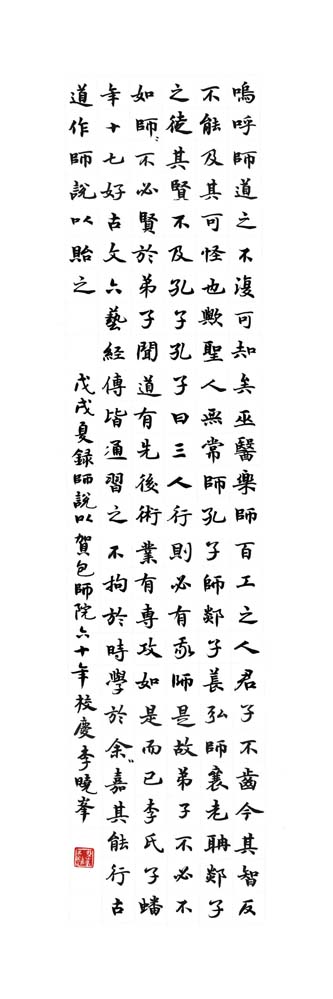 嗚呼師道之不復可知矣巫醫樂師百工之人君子不齒今其智反
不能及其可怪也歟聖人無常師孔子師郯子萇弘師襄老聃郯子
之徒其賢不及孔子孔子曰三人行則必有我師是故弟子不必不
如師〻不必賢於弟子聞道有先後術業有專攻如是而已李氏子蟠
年十七好古文六藝經傳皆通習之不拘於時學於余〻嘉其能行古
道作師說以貽之 戊戌夏録師說以賀包師院六十年校慶李曉峯